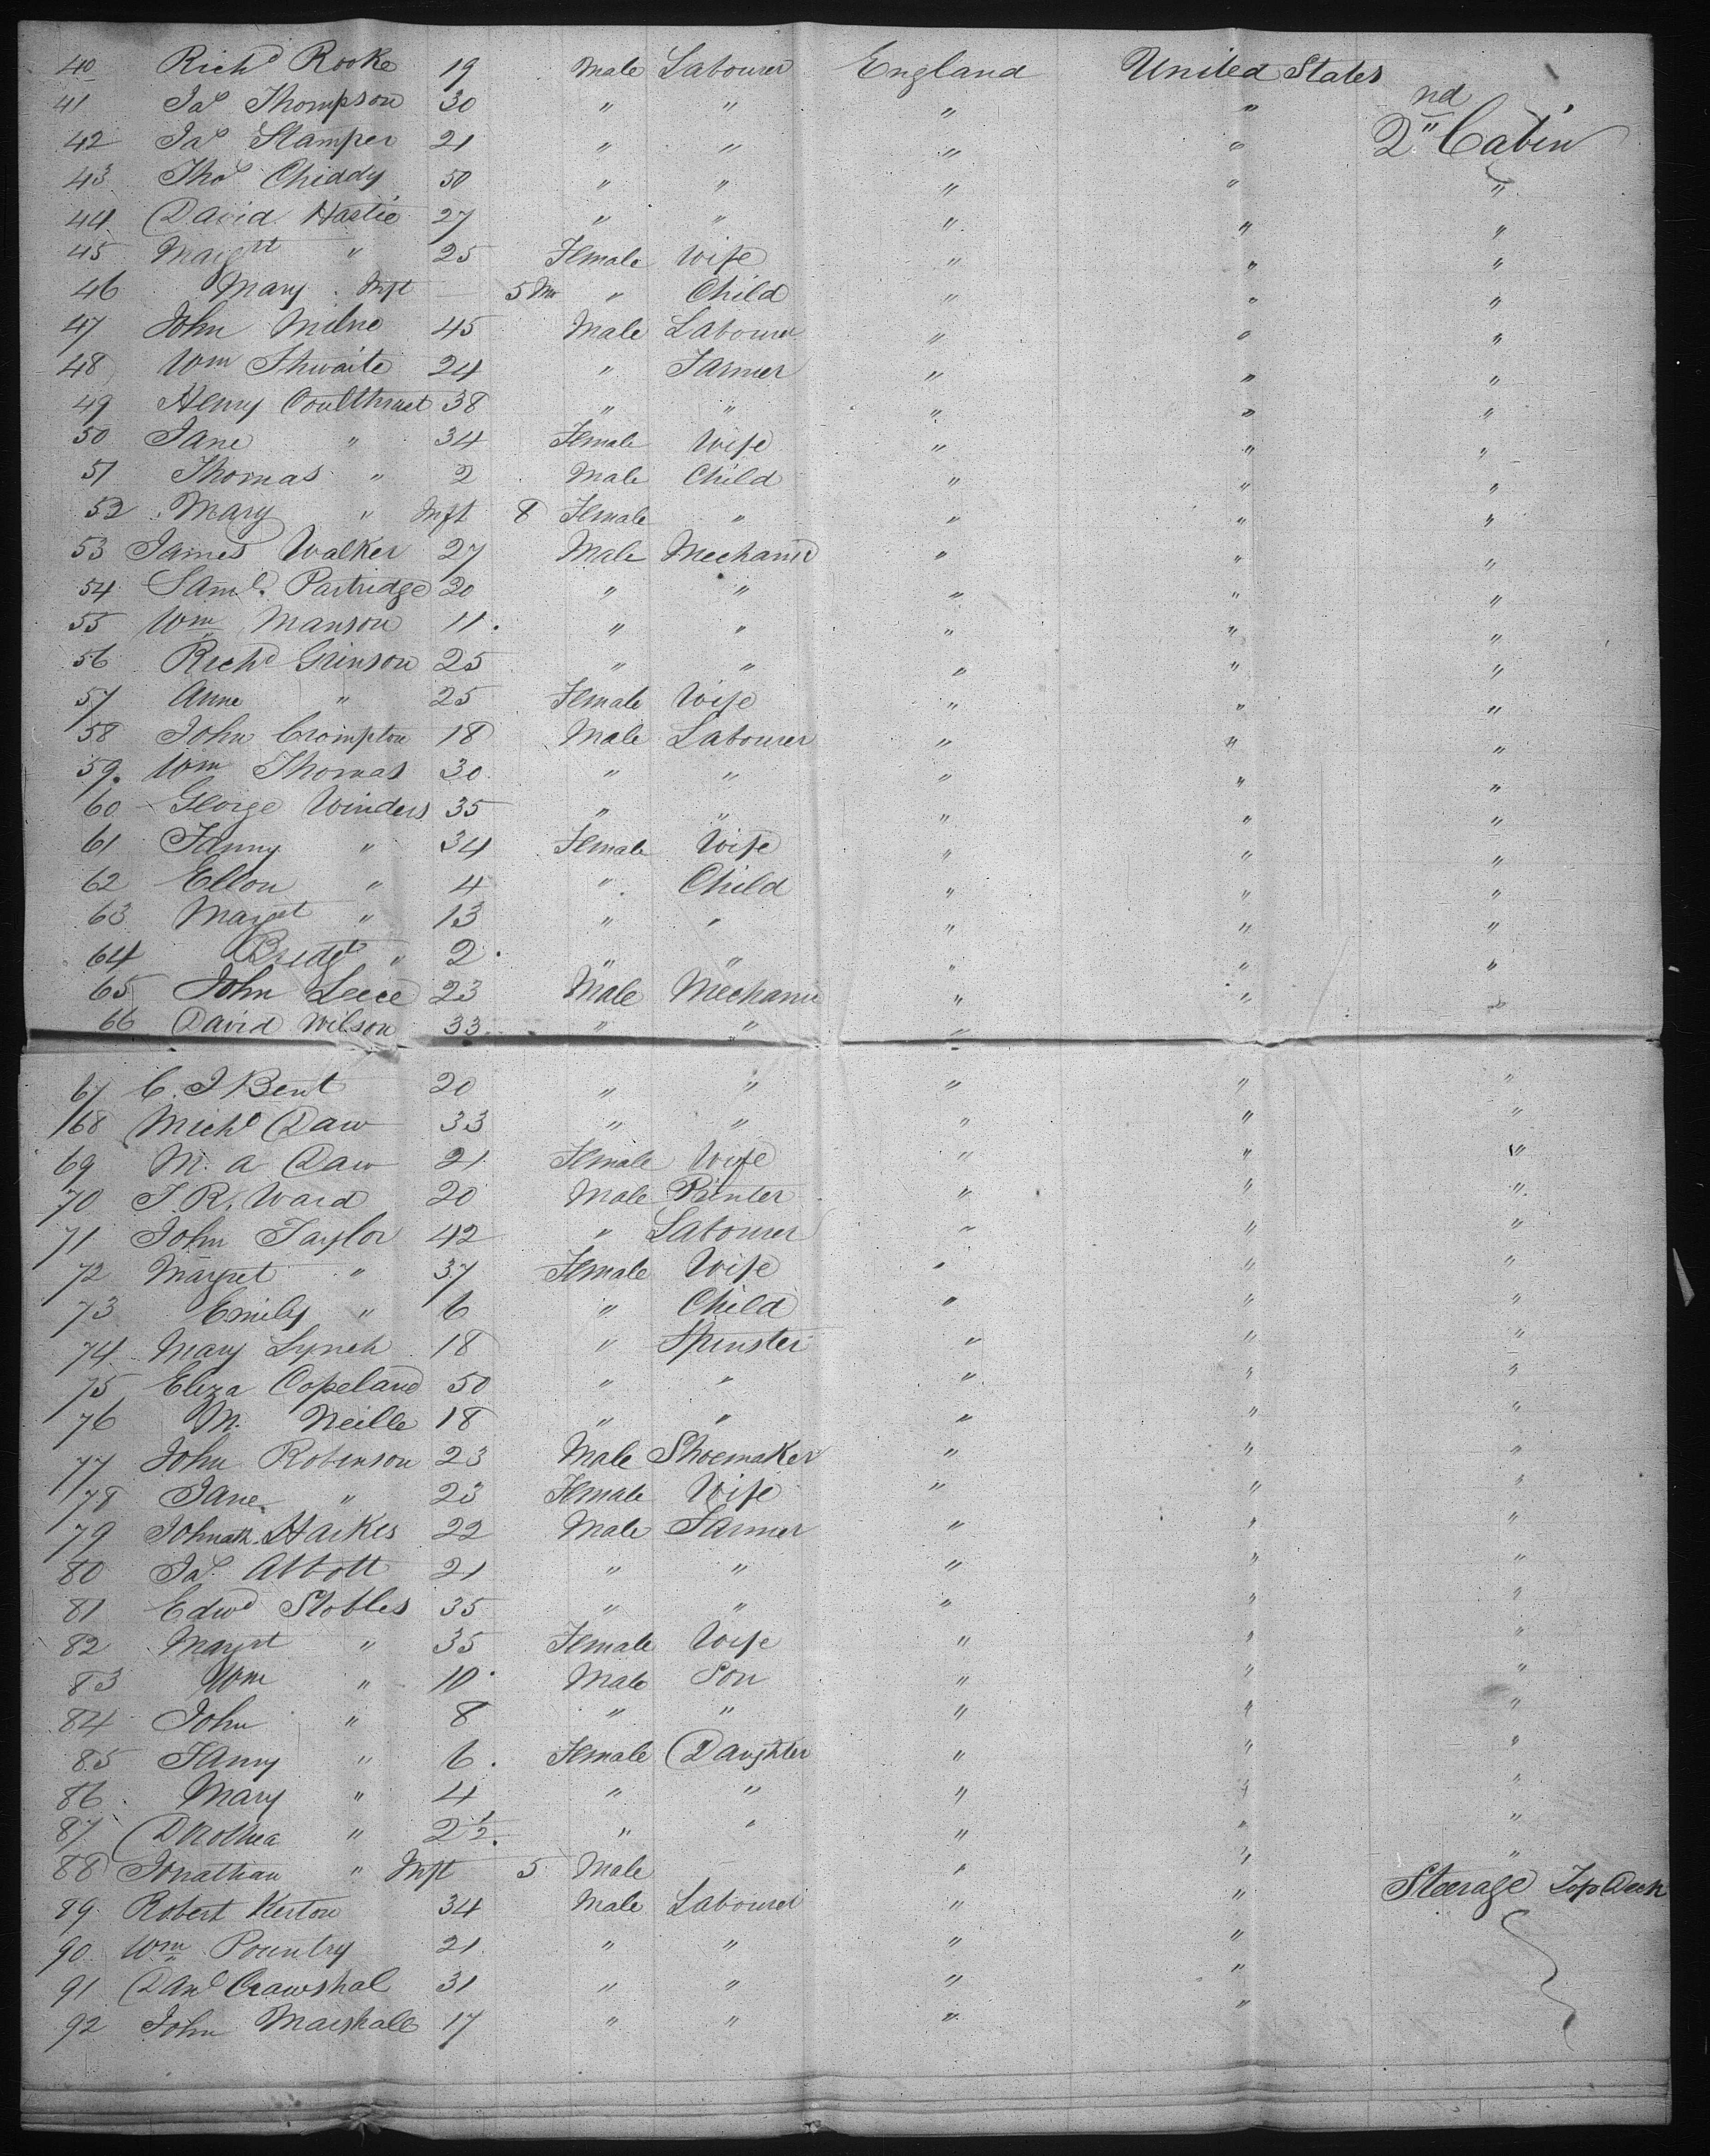 40 Richd Rooke 19 Male Labourer England United States
41 Jas Thompson 30 " " " " 2nd Cabin
42 Jas Stamper 21 " " " "
43 Thos Chiddy 50 " " " " "
44 David Hastie 27 " " " " "
45 Margtt " 25 Female Wife " " "
46 Mary Inft 5 Mo " Child " " "
47 John Milne 45 Male Labourer " " "
48 Wm Thwaite 24 " Farmer " " "
49 Henry Coulthrust 38 " " " " "
50 Jane " 34 Female Wife " " "
51 Thomas " 2 Male Child " " "
52 Mary " Inft 8 Female " " " "
53 James Walker 27 Male Mechanic " " "
54 Saml. Partridge 20 " " " " "
55 Wm Manson 11 " " " " "
56 Richd Grinson 25 " " " " "
57 Anne " 25 Female Wife " " "
58 John Crompton 18 Male Labourer " " "
59 Wm Thomas 30 " " " " "
60 George Winders 35 " " " " "
61 Fanny " 34 Female Wife " " "
62 Ellon " 4 " Child " " "
63 Margt " 13 " " " " "
64 Bridgt " 2 " " " " "
65 John Leece 23 Male Mechanic " " "
66 David Wilson 33 " " "
67 C. J Bent 20 " " " " "
68 Michl Daw 33 " " " " "
69 M. a Daw 21 Female Wife " " "
70 J. R. Ward 20 Male Painter " " "
71 John Taylor 42 " Labourer " " "
72 Margret " 37 Female Wife " " "
73 Emily " 6 " Child " " "
74 Mary Lynch 18 " Spinster " " "
75 Eliza Copeland 50 " " " " "
76 M. Neille 18 " " " " "
77 John Robinson 23 Male Shoemaker " " "
78 Jane " 23 Female Wife " " "
79 Johnath. Harkes 22 Male Farmer " " "
80 Jas Abbott 21 " " " " "
81 Edwd Stobles 35 " " " " "
82 Margrt " 35 Female Wife " " "
83 Wm " 10 Male Son " " "
84 John " 8 " " " " "
85 Fanny " 6 Female Daughter " " "
86 Mary " 4 " " " " "
87 Dorothea " 2½ " " " " "
88 Jonathan " Inft 5 Male " " "
89 Robert Kerton 34 Male Labourer " " Steerage Top Deck
90 Wm Pountry 21 " " " "
91 Danl Crawshal 31 " " " "
92 John Marshall 17 " " " "